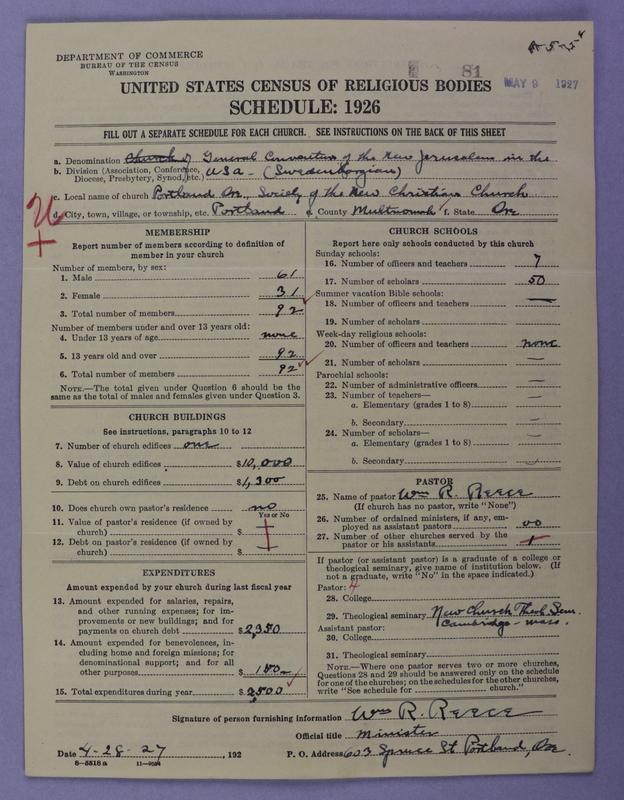 4-5-5 4
DEPARTMENT OF COMMERCE
BUREAU OF THE CENSUS
WASHINGTON
81
MAY 9 1927
UNITED STATES CENSUS OF RELIGIOUS BODIES
SCHEDULE: 1926
FILL OUT A SEPARATE SCHEDULE FOR EACH CHURCH. SEE INSTRUCTIONS ON THE BACK OF THIS SHEET
a. Denomination Church of General Convention of the New Jerusalem in the
b. Division (Association, Conference, USA - (Swedenborgian)
Diocese, Presbytery, Synod, etc.)
c. Local name of church Portland Ore., Society of the New Christian Church
d. City, town, village, or township, etc. Portland e. County Multnomah f. State Ore
MEMBERSHIP
Report number of members according to definition of
member in your church
Number of members, by sex:
1. Male 61
2. Female 31
3. Total number of members 92
Number of members under and over 13 years old:
4. Under 13 years of age none
5. 13 years old and over 92
6. Total number of members 92
NOTE.—The total given under Question 6 should be the
same as the total of males and females given under Question 3.
CHURCH BUILDINGS
See instructions, paragraphs 10 to 12
7. Number of church edifices one
8. Value of church edifices $10,000
9. Debt on church edifices $1,300
10. Does church own pastor's residence no
Yes or No
11. Value of pastor's residence (if owned by
church) $
12. Debt on pastor's residence (if owned by
church) $
EXPENDITURES
Amount expended by your church during last fiscal year
13. Amount expended for salaries, repairs,
and other running expenses; for im-
provements or new buildings; and for
payments on church debt $2,350
14. Amount expended for benevolences, in-
cluding home and foreign missions; for
denominational support; and for all
other purposes $150-
15. Total expenditures during year $2,500
CHURCH SCHOOLS
Report here only schools conducted by this church
Sunday schools:
16. Number of officers and teachers 7
17. Number of scholars 50
Summer vacation Bible schools:
18. Number of officers and teachers —
19. Number of scholars
Week-day religious schools:
20. Number of officers and teachers none
21. Number of scholars —
Parochial schools:
22. Number of administrative officers —
23. Number of teachers—
a. Elementary (grades 1 to 8) —
b. Secondary —
24. Number of scholars—
a. Elementary (grades 1 to 8) —
b. Secondary —
PASTOR
25. Name of pastor Wm R. Reece
(If church has no pastor, write "None")
26. Number of ordained ministers, if any, em-
ployed as assistant pastors oo
27. Number of other churches served by the
pastor or his assistants
If pastor (or assistant pastor) is a graduate of a college or
theological seminary, give name of institution below. (If
not a graduate, write "No" in the space indicated.)
Pastor: 4
28. College
29. Theological seminary New Church Theol. Sem.
Assistant pastor: Cambridge - Mass.
30. College
31. Theological seminary
NOTE.—Where one pastor serves two or more churches,
Questions 28 and 29 should be answered only on the schedule
for one of the churches; on the schedules for the other churches,
write "See schedule for church."
Signature of person furnishing information Wm R. Reece
Official title Minister
Date 4-28-27, 192 P. O. Address 603 Spruce St Portland, Ore.
8—5518a 11—9024